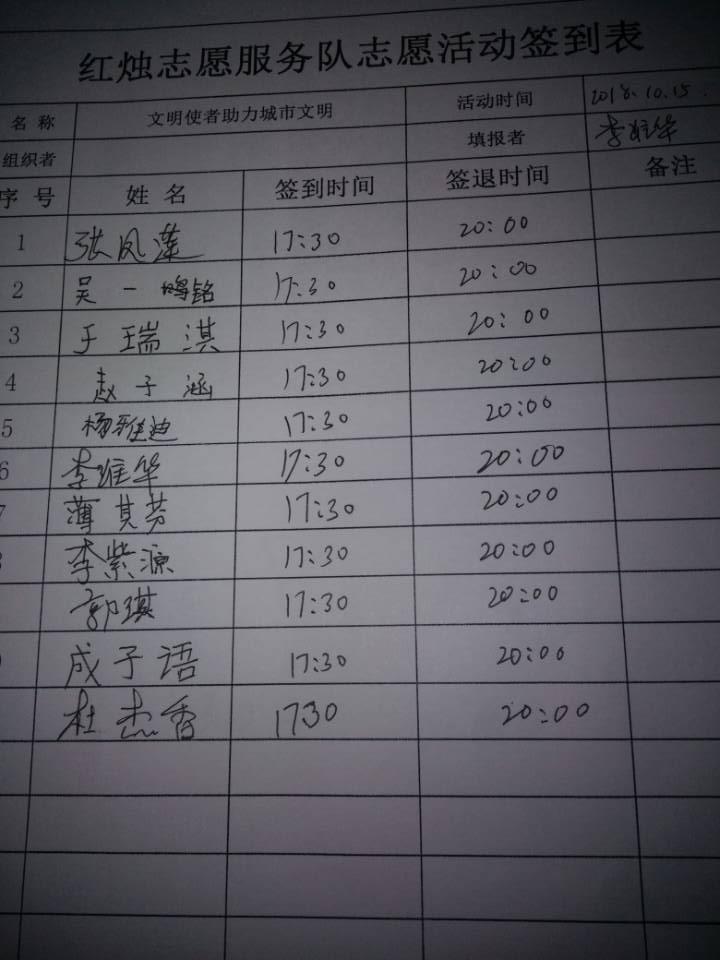 红烛志愿服务队志愿活动签到表
名称 文明使者助力城市文明 活动时间 2018.10.15
组织者 填报者 李维华
序号 姓名 签到时间 签退时间 备注
1 张凤莲 17:30 20:00
2 吴一鸣铭 17:30 20:00
3 于瑞淇 17:30 20:00
4 赵子涵 17:30 20:00
5 杨雅迪 17:30 20:00
6 李维华 17:30 20:00
7 薄其芳 17:30 20:00
李紫源 17:30 20:00
郭琪 17:30 20:00
成子语 17:30 20:00
杜杰香 1730 20:00